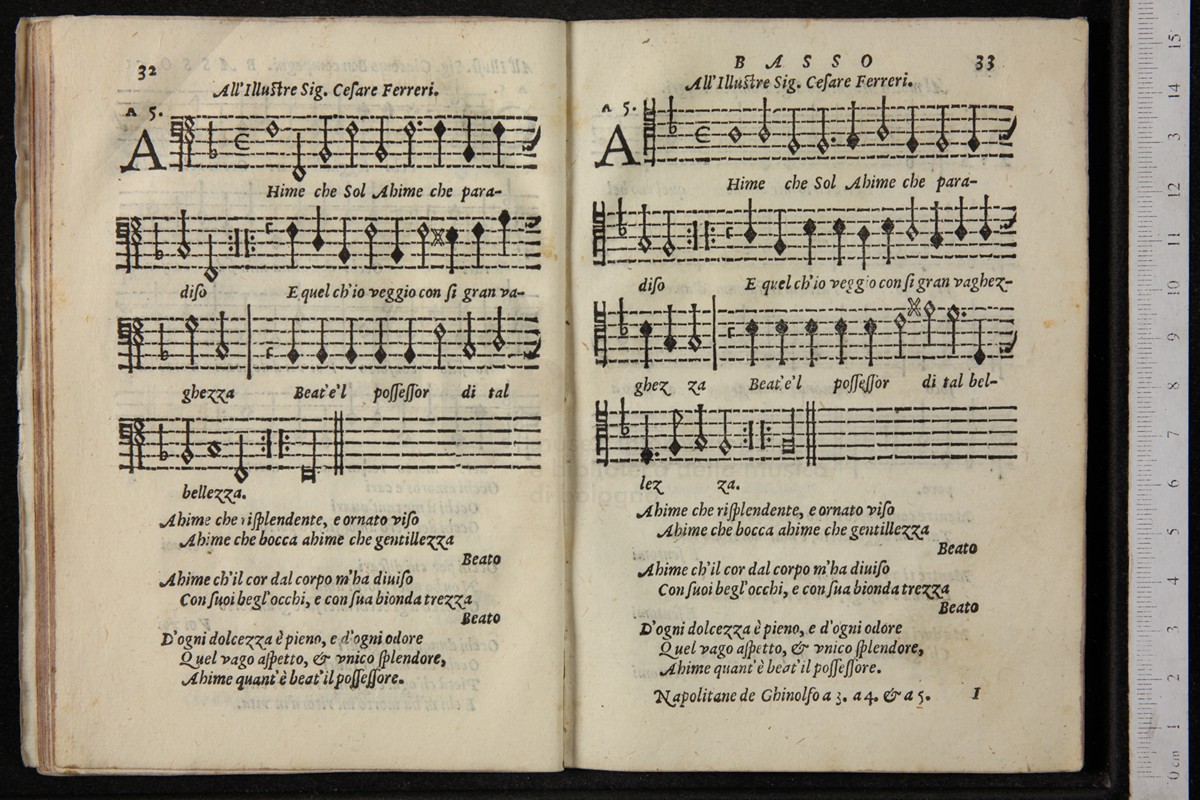 32
All'Illuſtre Sig. Ceſare Ferreri.
A 5.
A
Hime che Sol Ahime che para-
diſo E quel ch'io veggio con ſi gran va-
ghezza Beat'e'l poſſeſſor di tal
bellezza.
Ahime che riſplendente, e ornato viſo
Ahime che bocca ahime che gentillezza
Beato
Ahime ch'il cor dal corpo m'ha diuiſo
Con ſuoi begl'occhi, e con ſua bionda trezza
Beato
D'ogni dolcezza è pieno, e d'ogni odore
Quel vago aſpetto, & vnico ſplendore,
Ahime quant'è beat'il poſſeſſore.
BASSO 33
All'Illuſtre Sig. Ceſare Ferreri.
A 5.
A
Hime che Sol Ahime che para-
diſo E quel ch'io veggio con ſi gran vaghez-
ghez za Beat'e'l poſſeſſor di tal bel-
lez za.
Ahime che riſplendente, e ornato viſo
Ahime che bocca ahime che gentillezza
Beato
Ahime ch'il cor dal corpo m'ha diuiſo
Con ſuoi begl'occhi, e con ſua bionda trezza
Beato
D'ogni dolcezza è pieno, e d'ogni odore
Quel vago aſpetto, & vnico ſplendore,
Ahime quant'è beat'il poſſeſſore.
Napolitane de Ghinolfo a 3. a 4. & a 5. I
0 cm 1 2 3 4 5 6 7 8 9 10 11 12 13 14 15